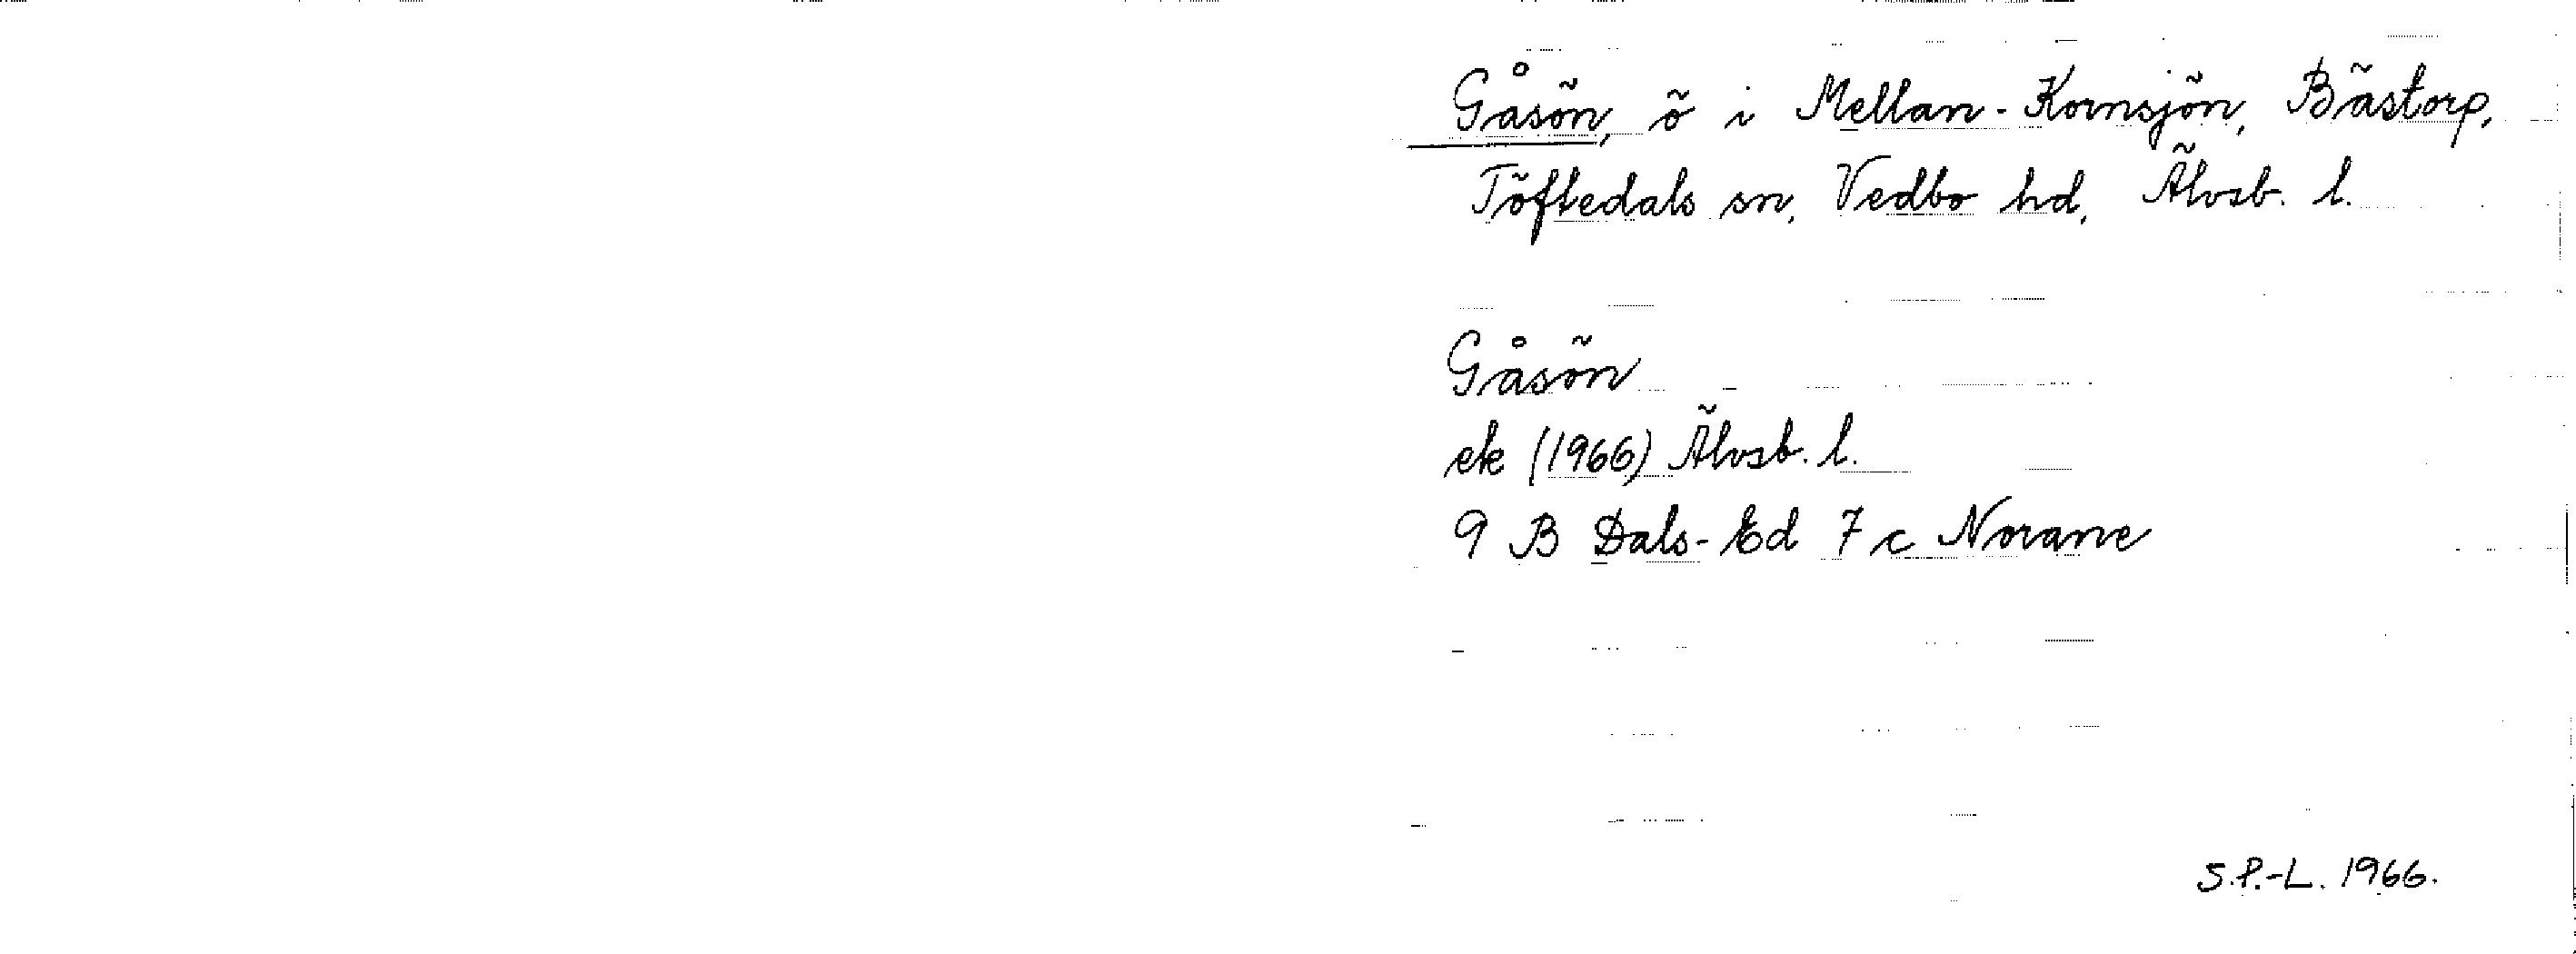 Gåsön, ö i Mellan-Kornsjön, Bästorp,
Töftedals sn, Vedbo hd, Älvsb. l.
Gåsön
ek (1966) Älvsb. l.
9 B Dals-Ed 7 c Norane
S.P.-L. 1966.